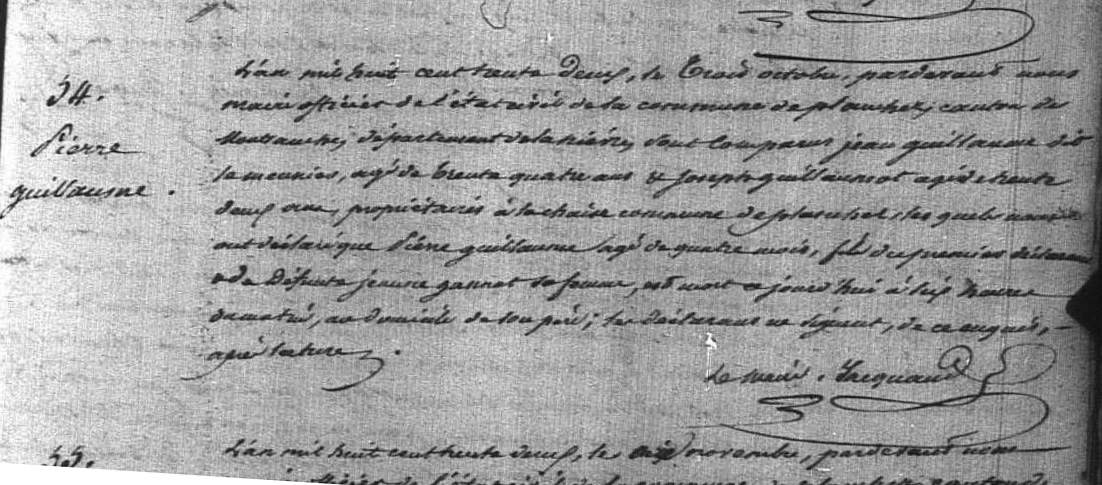 34.
Pierre
guillaume.
L'an mil huit cent trente deux, le trois octobre, pardevant nous
maire officier de l'état civil de la commune de planchez, canton de
Montsauche, département de la nièvre, sont comparus jean guillaume dit
le meunier, agé de trente quatre ans & joseph guillaumot agé de trente
deux ans, propriétaires à la chaise commune de planchez, les quels nous
ont déclaré que Pierre guillaume agé de quatre mois, fils du premier déclarant
& de défunte jeanne gannot sa femme, est mort ce jourd'hui à six heures
du matin, au domicile de son père; les déclarans ne signent, de ce enquis,
après lecture.
Le maire. Jacquand
35.
L'an mil huit cent trente deux, le novembre, pardevant nous
officier de l'état civil de la commune de planchez canton de